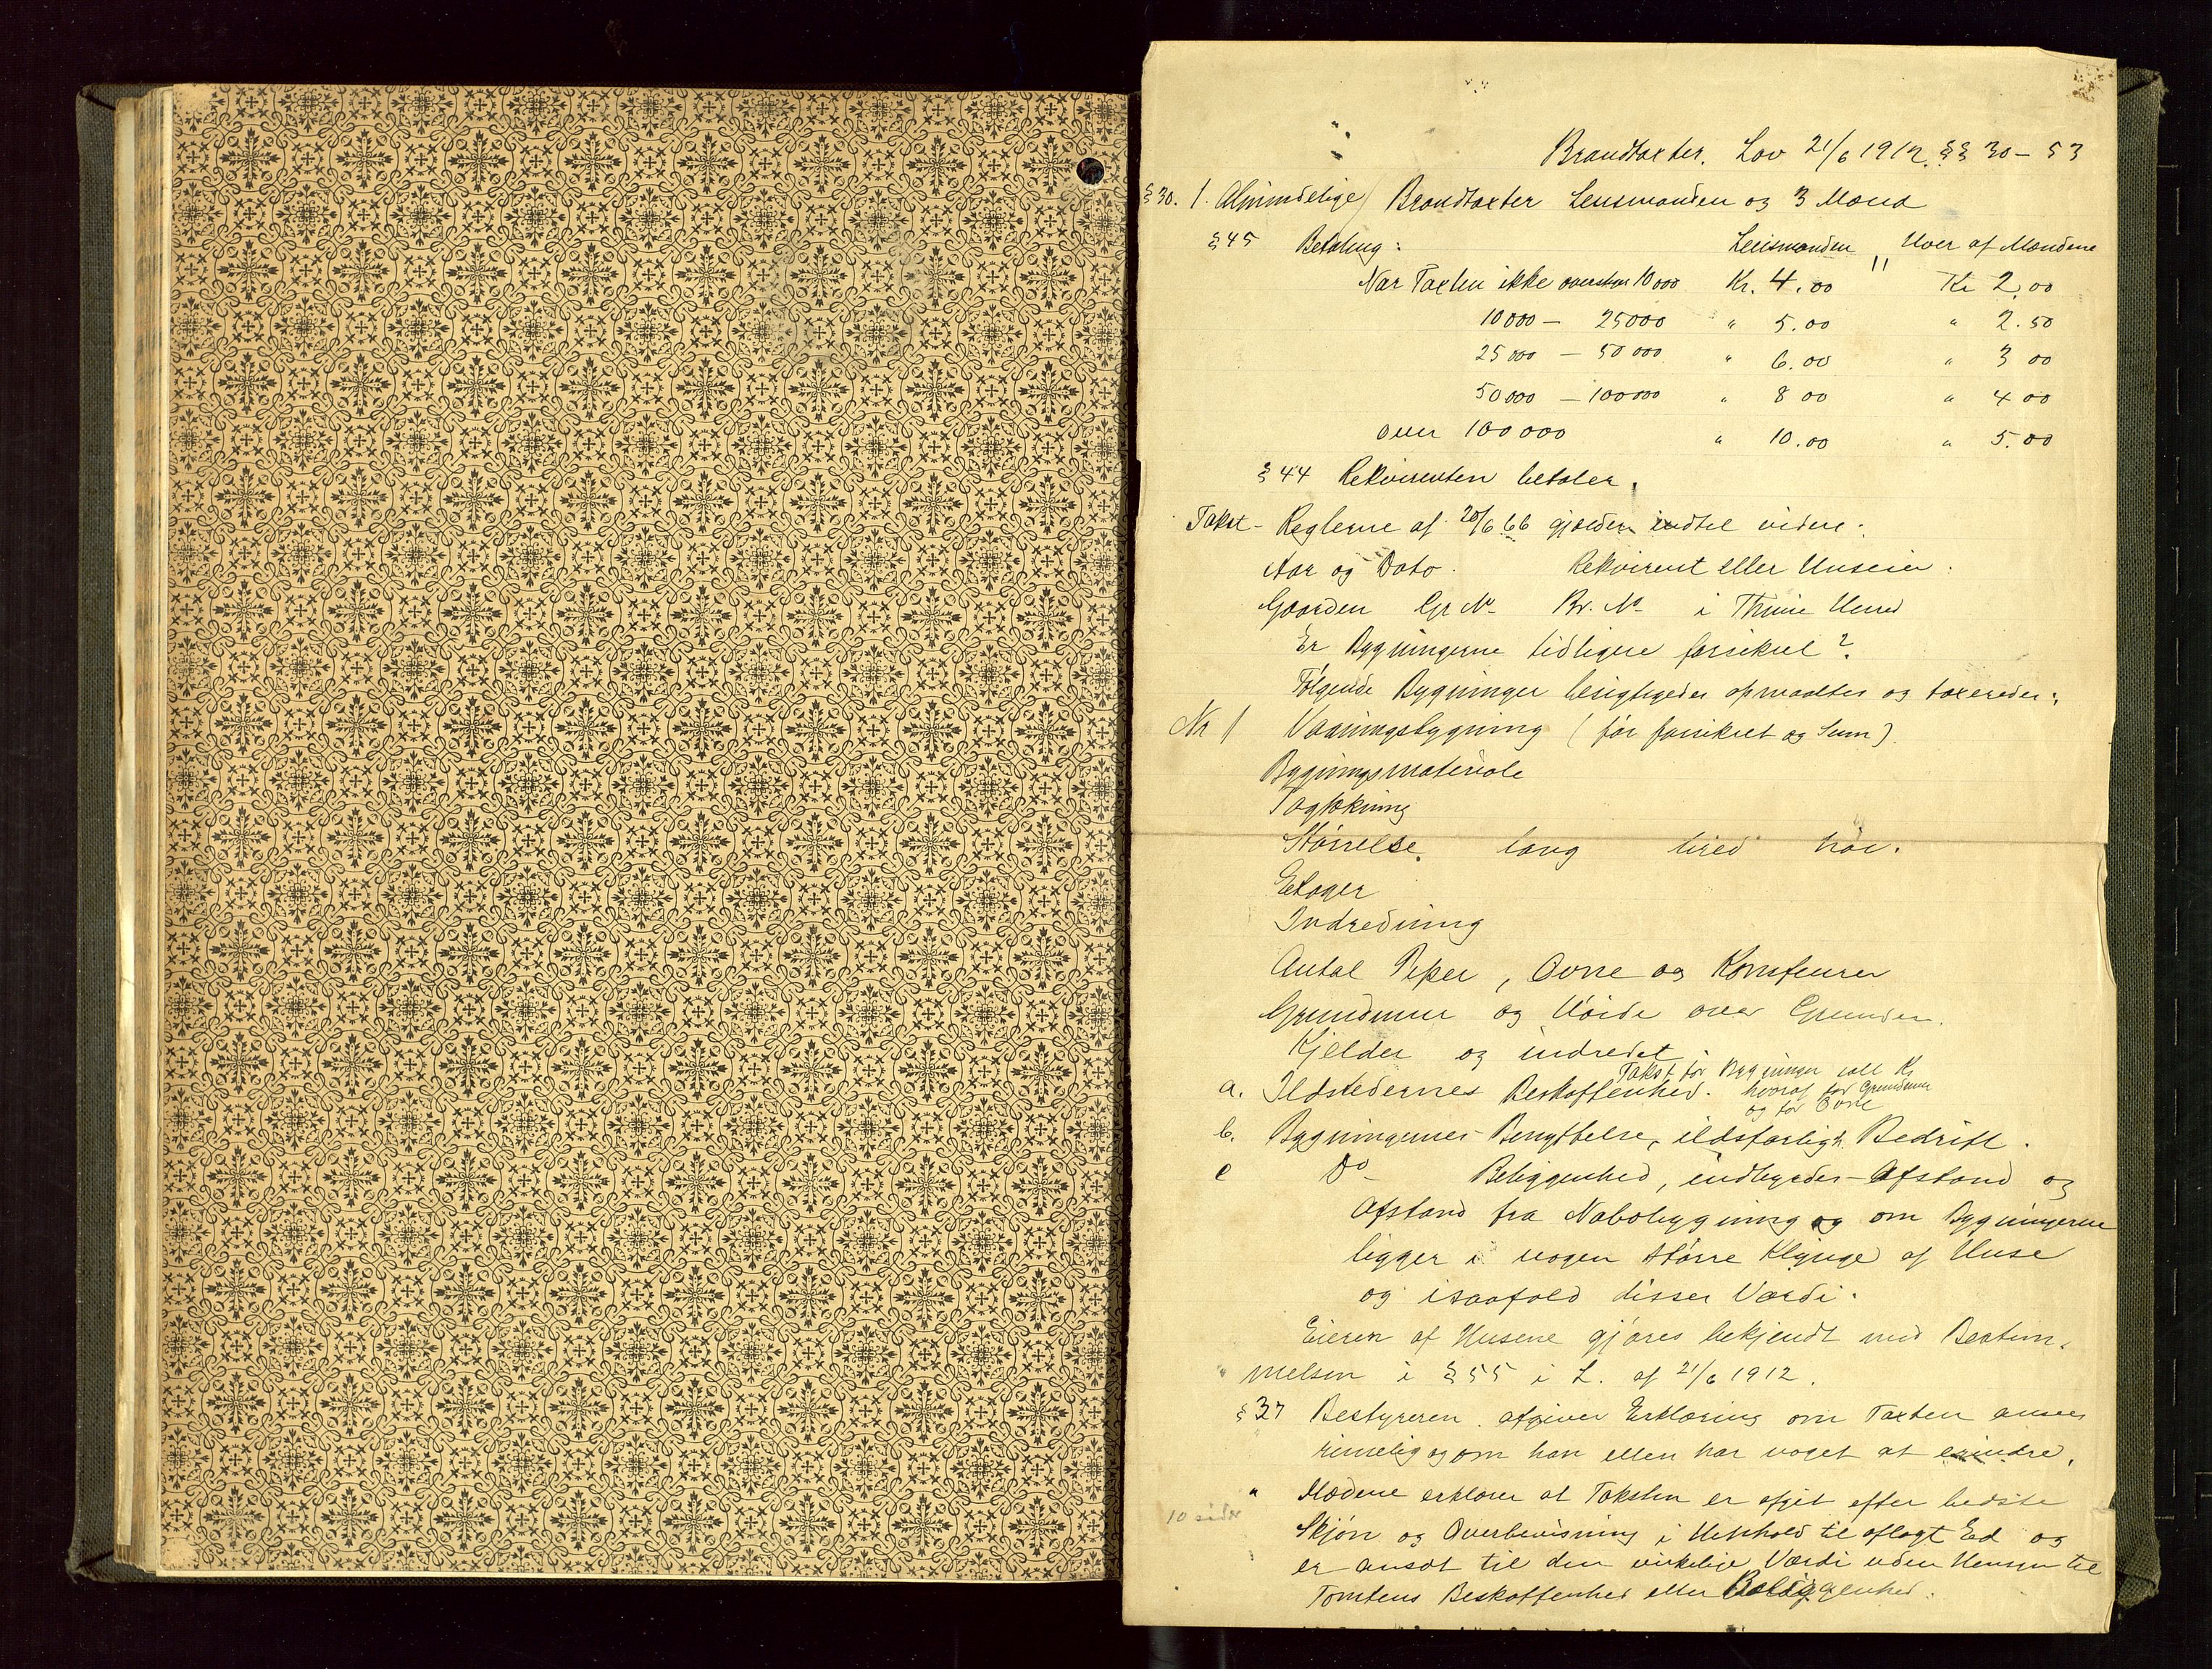 Brandtaxter. Lov 21/6 1912 §§ 30 - 53
§ 30. 1. Almindelige Brandtaxter Lensmanden og 3 Mænd
§ 45 Betaling: Lensmanden " Hver af Mændene
Når Taxten ikke overstiger 10 000 Kr. 4.00 Kr 2.00
10 000 — 25 000 " 5.00 " 2.50
25 000 — 50 000 " 6.00 " 3 00
50 000 — 100 000 " 8 00 " 4 00
over 100 000 " 10.00 " 5.00
§ 44 Rekvirenten betaler.
Takst - Reglerne af 20/6 66 gjælder indtil videre:
Aar og Dato. Rekvirent eller Huseier.
Gaarden Gr No Br. No i Thime Herred
Er Bygningerne tidligere forsikret?
Følgende Bygninger besigtigedes opmaaltes og taxeredes:
Nr 1 Vaaningsbygning (før forsikret og Sum).
Bygningsmateriale
Tagtækning
Størrelse. lang bred høi.
Etager
Indredning
Antal Piper, Ovne og Komfeurer
Grundmur og Høide over Grunden.
Kjelder og indredet
Takst for Bygninger ialt Kr
a. Ildstedernes Beskaffenhed. hvoraf for Grundmur
og for Ovne
b. Bygningernes Benyttelse, ildsfarligh. Bedrift.
c Do - Beliggenhed, indbyrdes - Afstand og
Afstand fra Nabobygning og om Bygningerne
ligger i nogen større Klynge af Huse
og isaafald disses Værdi.
Eieren af Husene gjøres bekjendt med Bestem-
melsen i § 55 i L. af 21/6 1912.
§ 37 Bestyreren afgiver Erklæring om Taxten ansees
rimelig og om han ellers har noget at erindre.
" Mædene erklærer at Taksten er afgit efter bedste
10 sider
Skjøn og Overbevisning i Henhold til aflagt Ed og
er ansat til den virkelige Værdi uden Hensyn til
Tomtens Beskaffenhed eller Beliggenhed.